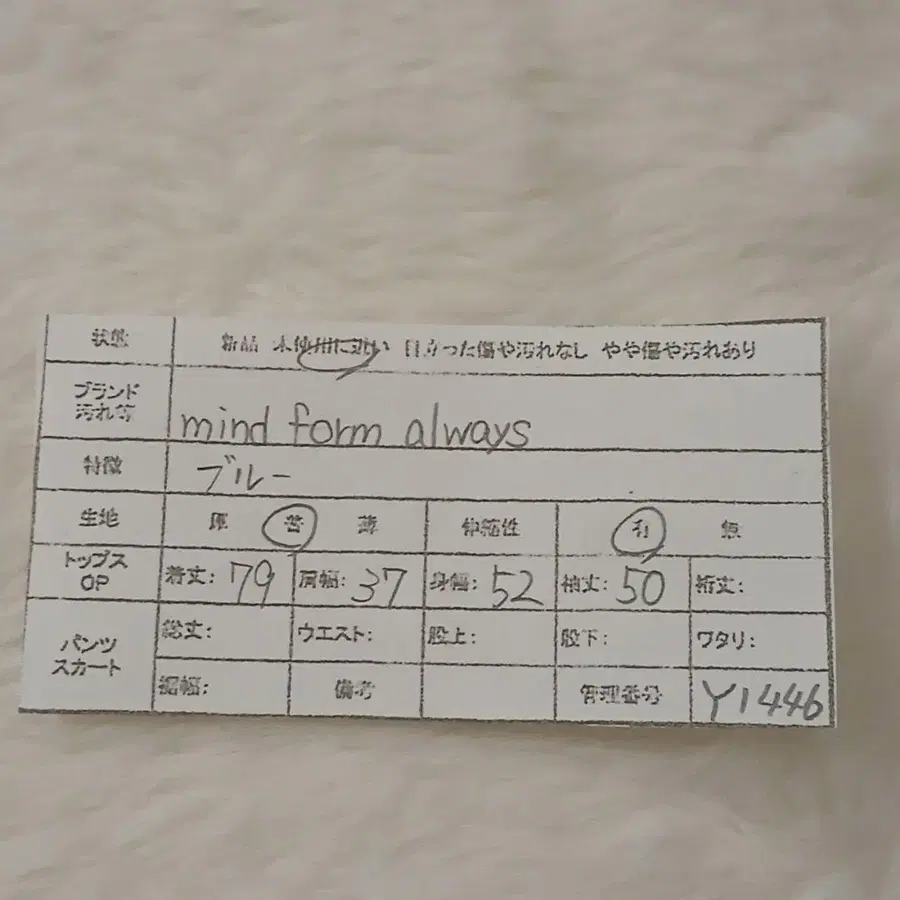 状態 新品 未使用に近い 目立った傷や汚れなし やや傷や汚れあり
ブランド
汚れ等
mind form always
特徴 ブルー
生地 厚 普 薄 伸縮性 有 無
トップス
OP
着丈: 79 肩幅: 37 身幅: 52 袖丈: 50 裄丈:
パンツ
スカート
総丈: ウエスト: 股上: 股下: ワタリ:
裾幅: 備考 管理番号 Y1446